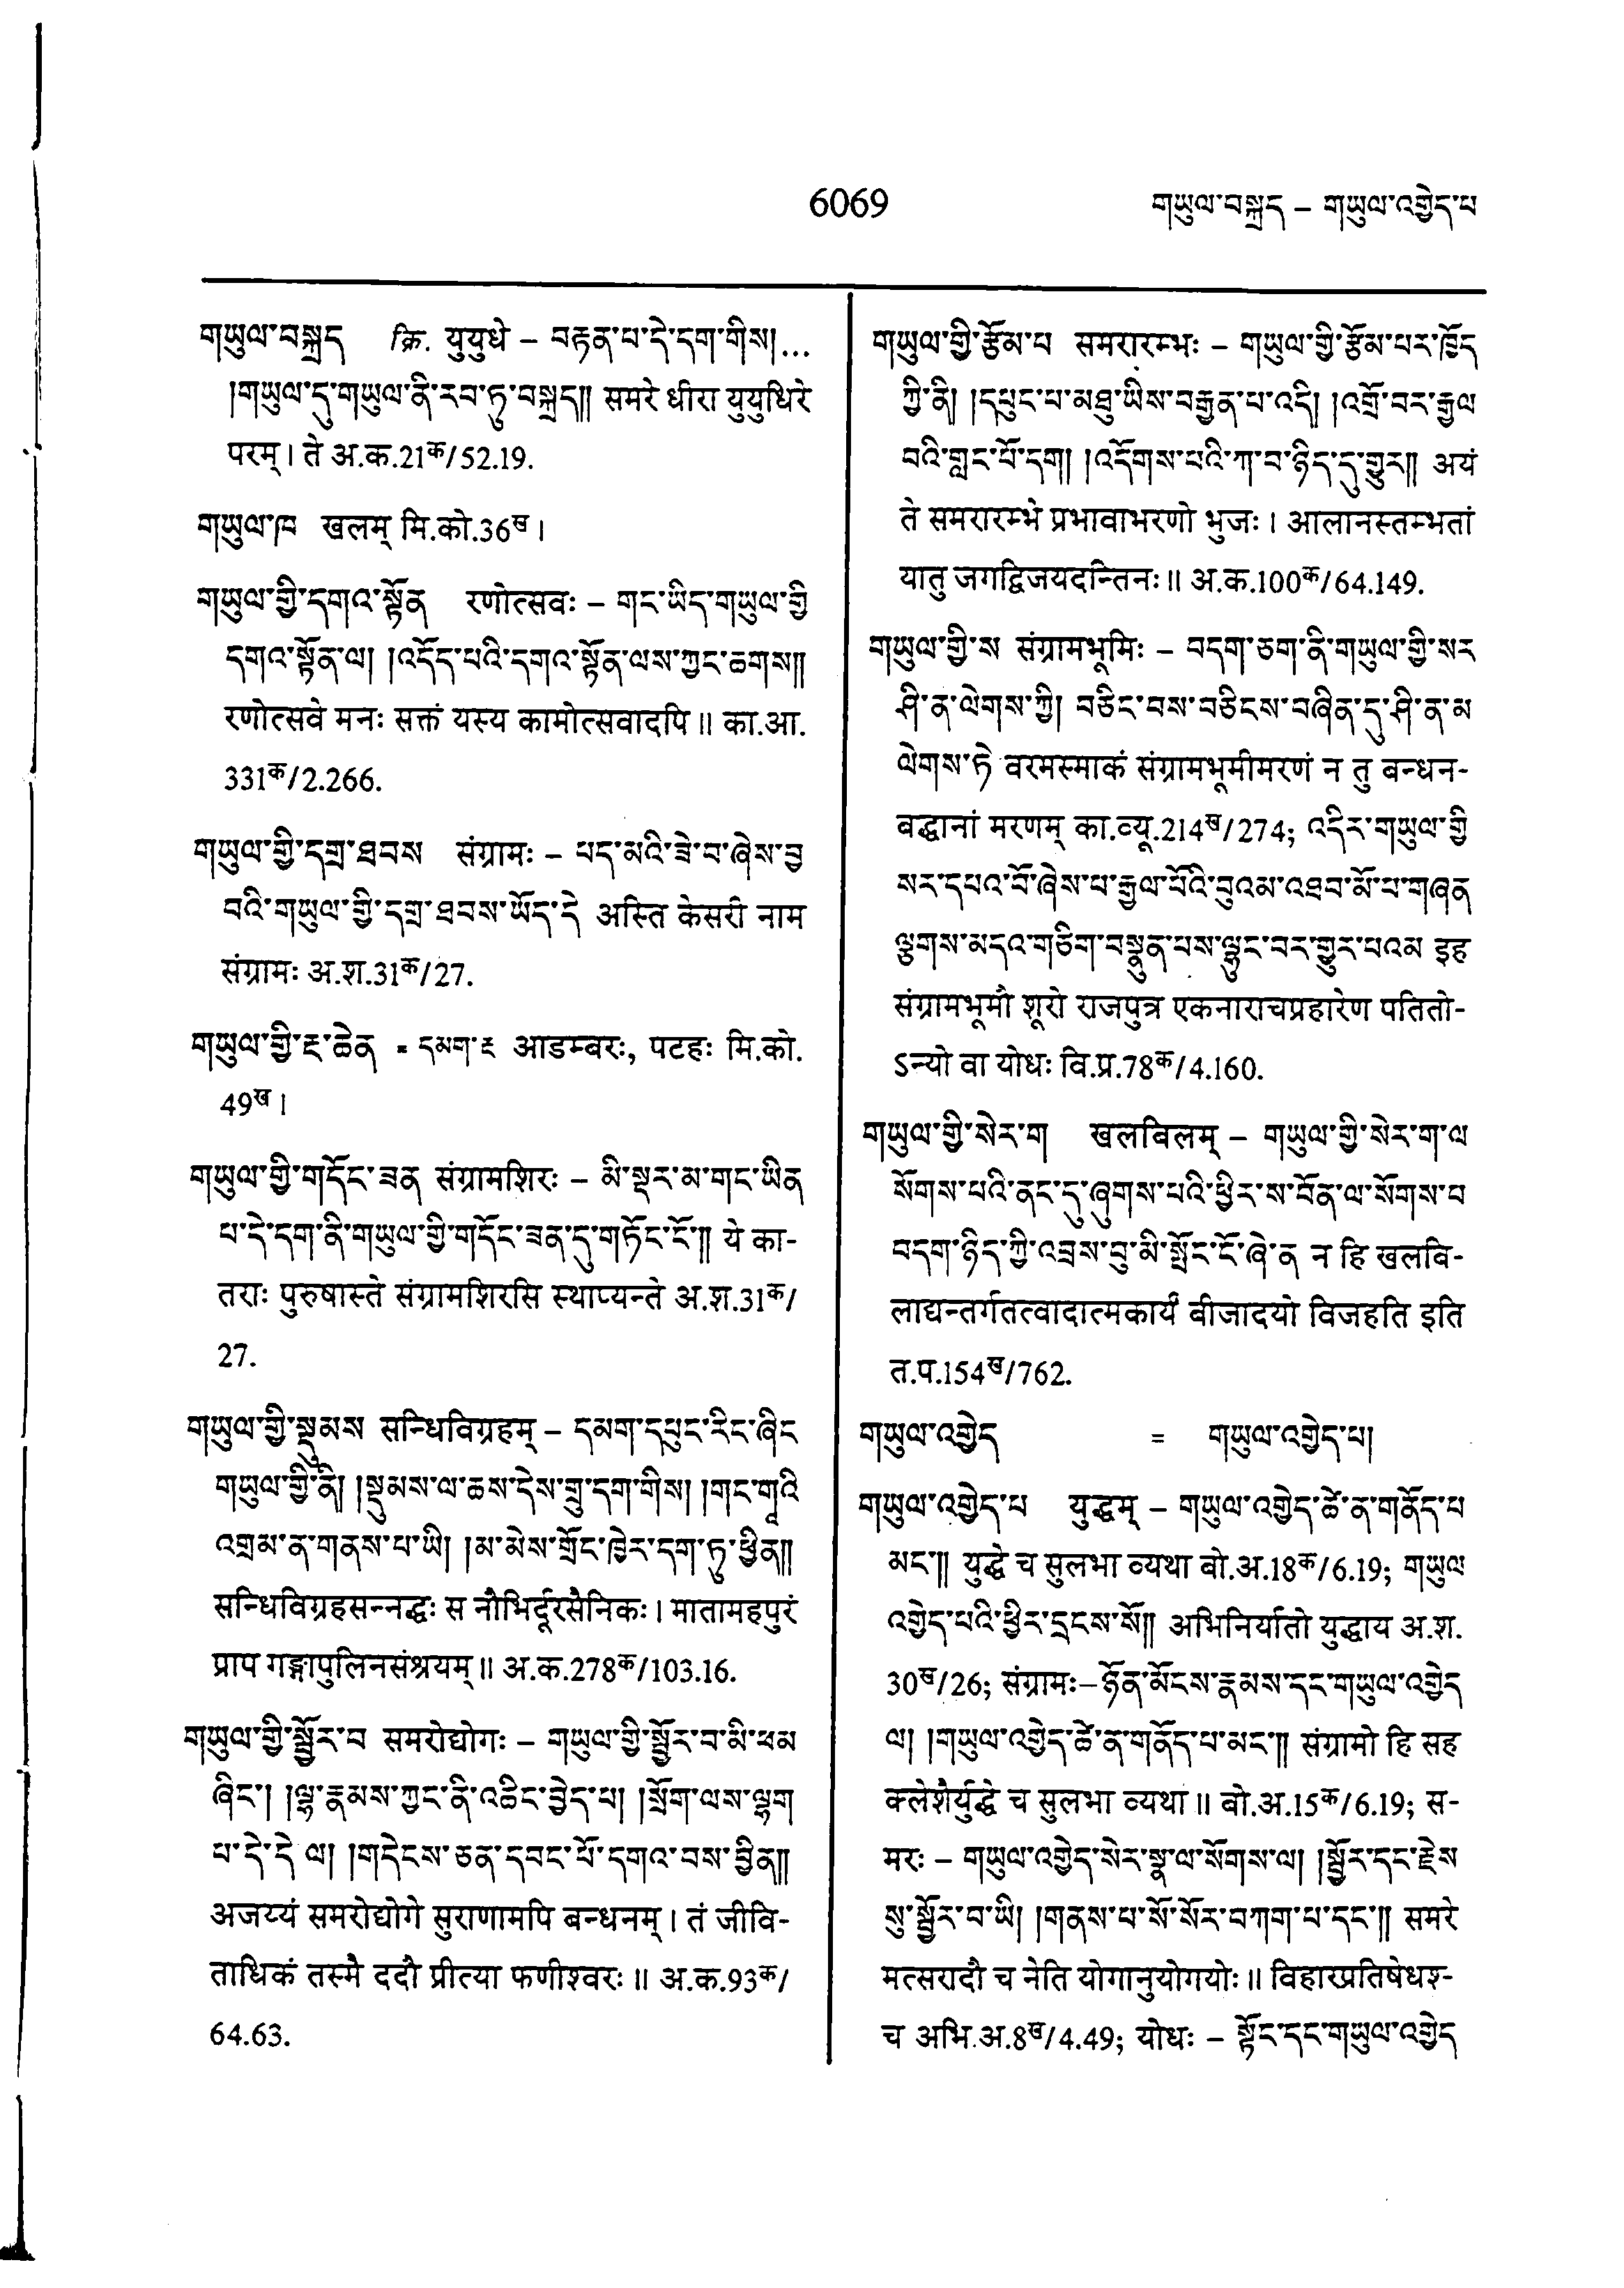 6069
གཡུལ་བསྐྲད – གཡུལ་འགྱེད་པ
གཡུལ་བསྐྲད क्रि. युयुधे – བརྟན་པ་དེ་དག་གིས།...
།གཡུལ་དུ་གཡུལ་ནི་རབ་ཏུ་བསྐྲད།། समरे धीरा युयुधिरे
परम्। ते अ.क.21क/52.19.
གཡུལ་ཁ खलम् मि.को.36ख।
གཡུལ་གྱི་དགའ་སྟོན रणोत्सवः – གང་ཡིད་གཡུལ་གྱི
དགའ་སྟོན་ལ། །འདོད་པའི་དགའ་སྟོན་ལས་ཀྱང་ཆགས།།
रणोत्सवे मनः सक्तं यस्य कामोत्सवादपि॥ का.आ.
331क/2.266.
གཡུལ་གྱི་དགྲ་ཐབས संग्रामः – པད་མའི་ཟེ་བ་ཞེས་བྱ
བའི་གཡུལ་གྱི་དགྲ་ཐབས་ཡོད་དེ अस्ति केसरी नाम
संग्रामः अ.श.31क/27.
གཡུལ་གྱི་རྔ་ཆེན = དམག་རྔ आडम्बरः, पटहः मि.को.
49ख।
གཡུལ་གྱི་གདོང་ཟན संग्रामशिरः – མི་སྡར་མ་གང་ཡིན
པ་དེ་དག་ནི་གཡུལ་གྱི་གདོང་ཟན་དུ་གཏོང་ངོ་།། ये का-
तराः पुरुषास्ते संग्रामशिरसि स्थाप्यन्ते अ.श.31क/
27.
གཡུལ་གྱི་སྡུམས सन्धिविग्रहम् – དམག་དཔུང་རིང་ཞིང
གཡུལ་གྱི་ནི། །སྡུམས་ལ་ཆས་དེས་གྲུ་དག་གིས། །གང་གཱའི
འགྲམ་ན་གནས་པ་ཡི། །མ་མེས་གྲོང་ཁྱེར་དག་ཏུ་ཕྱིན།།
सन्धिविग्रहसन्नद्धः स नौभिर्दूरसैनिकः। मातामहपुरं
प्राप गङ्गापुलिनसंश्रयम्॥ अ.क.278क/103.16.
གཡུལ་གྱི་སྦྱོར་བ समरोद्योगः – གཡུལ་གྱི་སྦྱོར་བ་མི་ཕམ
ཞིང་། །ལྷ་རྣམས་ཀྱང་ནི་འཆིང་བྱེད་པ། །སྲོག་ལས་ལྷག
པ་དེ་དེ་ལ། །གདེངས་ཅན་དབང་པོ་དགའ་བས་བྱིན།།
अजय्यं समरोद्योगे सुराणामपि बन्धनम्। तं जीवि-
ताधिकं तस्मै ददौ प्रीत्या फणीश्वरः॥ अ.क.93क/
64.63.
གཡུལ་གྱི་རྩོམ་པ समरारम्भः – གཡུལ་གྱི་རྩོམ་པར་ཁྱོད
ཀྱི་ནི། །དཔུང་པ་མཐུ་ཡིས་བརྒྱན་པ་འདི། །འགྲོ་བར་རྒྱལ
བའི་གླང་པོ་དག། །འདོགས་པའི་ཀ་བ་ཉིད་དུ་གྱུར།། अयं
ते समरारम्भे प्रभावाभरणो भुजः। आलानस्तम्भतां
यातु जगद्विजयदन्तिनः॥ अ.क.100क/64.149.
གཡུལ་གྱི་ས संग्रामभूमिः – བདག་ཅག་ནི་གཡུལ་གྱི་སར
ཤི་ན་ལེགས་ཀྱི། བཅིང་བས་བཅིངས་བཞིན་དུ་ཤི་ན་མ
ལེགས་ཏེ वरमस्माकं संग्रामभूमीमरणं न तु बन्धन-
बद्धानां मरणम् का.व्यू.214ख/274; འདིར་གཡུལ་གྱི
སར་དཔའ་བོ་ཞེས་པ་རྒྱལ་པོའི་བུའམ་འཐབ་མོ་པ་གཞན
ལྕགས་མདའ་གཅིག་བསྣུན་པས་ལྷུང་བར་གྱུར་པའམ इह
संग्रामभूमौ शूरो राजपुत्र एकनाराचप्रहारेण पतितो-
ऽन्यो वा योधः वि.प्र.78क/4.160.
གཡུལ་གྱི་སེར་ག खलबिलम् – གཡུལ་གྱི་སེར་ག་ལ
སོགས་པའི་ནང་དུ་ཞུགས་པའི་ཕྱིར་ས་བོན་ལ་སོགས་པ
བདག་ཉིད་ཀྱི་འབྲས་བུ་མི་སྤོང་ངོ་ཞེ་ན न हि खलबि-
लाद्यन्तर्गतत्वादात्मकार्यं बीजादयो विजहति इति
त.प.154ख/762.
གཡུལ་འགྱེད = གཡུལ་འགྱེད་པ།
གཡུལ་འགྱེད་པ युद्धम् – གཡུལ་འགྱེད་ཚེ་ན་གནོད་པ
མང་།། युद्धे च सुलभा व्यथा बो.अ.18क/6.19; གཡུལ
འགྱེད་པའི་ཕྱིར་དྲངས་སོ།། अभिनिर्यातो युद्धाय अ.श.
30ख/26; संग्रामः–ཉོན་མོངས་རྣམས་དང་གཡུལ་འགྱེད
ལ། །གཡུལ་འགྱེད་ཚེ་ན་གནོད་པ་མང་།། संग्रामो हि सह
क्लेशैर्युद्धे च सुलभा व्यथा॥ बो.अ.15क/6.19; स-
मरः – གཡུལ་འགྱེད་སེར་སྣ་ལ་སོགས་ལ། །སྦྱོར་དང་རྗེས
སུ་སྦྱོར་བ་ཡི། །གནས་པ་སོ་སོར་བཀག་པ་དང་།། समरे
मत्सरादौ च नेति योगानुयोगयोः॥ विहारप्रतिषेधश्-
च अभि.अ.8ख/4.49; योधः – སྟོང་དང་གཡུལ་འགྱེད